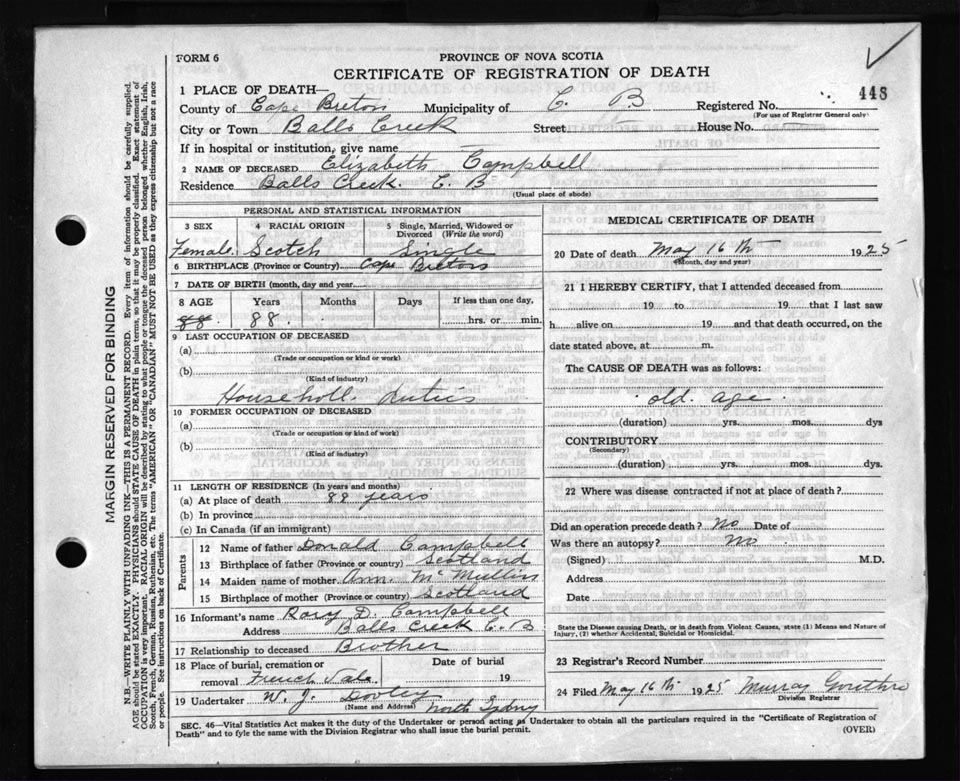 FORM 6
PROVINCE OF NOVA SCOTIA
CERTIFICATE OF REGISTRATION OF DEATH
1 PLACE OF DEATH—
County of Cape Breton Municipality of C. B Registered No. 448
(For use of Registrar General only)
City or Town Balls Creek Street — House No. —
If in hospital or institution, give name —
2 NAME OF DECEASED Elizabeth Campbell
Residence Balls Creek. C. B
(Usual place of abode)
PERSONAL AND STATISTICAL INFORMATION
3 SEX 4 RACIAL ORIGIN 5 Single, Married, Widowed or Divorced (Write the word)
Female. Scotch Single
6 BIRTHPLACE (Province or Country) Cape Breton
7 DATE OF BIRTH (month, day and year)
8 AGE Years Months Days If less than one day,
88 88. hrs. or min.
9 LAST OCCUPATION OF DECEASED
(a)
(Trade or occupation or kind or work)
(b)
(Kind of industry)
Householl. Duties
10 FORMER OCCUPATION OF DECEASED
(a)
(Trade or occupation or kind of work)
(b)
(Kind of industry)
11 LENGTH OF RESIDENCE (In years and months)
(a) At place of death 88 years
(b) In province
(c) In Canada (if an immigrant)
Parents
12 Name of father Donald Campbell
13 Birthplace of father (Province or country) Scotland
14 Maiden name of mother Ann. McMullin
15 Birthplace of mother (Province or country) Scotland
16 Informant's name Rory D. Campbell
Address Balls Creek C. B.
17 Relationship to deceased Brother
18 Place of burial, cremation or Date of burial
removal French Vale. 19
19 Undertaker W. J. Dooley
(Name and Address) North Sydney
MEDICAL CERTIFICATE OF DEATH
20 Date of death May 16th 1925
(Month, day and year)
21 I HEREBY CERTIFY, that I attended deceased from
19 to 19 that I last saw
h alive on 19 and that death occurred, on the
date stated above, at m.
The CAUSE OF DEATH was as follows:
old. age
(duration) yrs. mos. dys
CONTRIBUTORY
(Secondary)
(duration) yrs. mos. dys.
22 Where was disease contracted if not at place of death?
Did an operation precede death? No Date of
Was there an autopsy? No
(Signed) M.D.
Address
Date
State the Disease causing Death, or in death from Violent Causes, state (1) Means and Nature of
Injury, (2) whether Accidental, Suicidal or Homicidal.
23 Registrar's Record Number
24 Filed May 16th 1925 Murray
Division Registrar
SEC. 46—Vital Statistics Act makes it the duty of the Undertaker or person acting as Undertaker to obtain all the particulars required in the "Certificate of Registration of
Death" and to fyle the same with the Division Registrar who shall issue the burial permit. (OVER)
MARGIN RESERVED FOR BINDING
N.B.—WRITE PLAINLY WITH UNFADING INK—THIS IS A PERMANENT RECORD. Every item of information should be carefully supplied.
AGE should be stated EXACTLY. PHYSICIANS should STATE CAUSE OF DEATH in plain terms, so that it may be properly classified. Exact statement of
OCCUPATION is very important. RACIAL ORIGIN will be described by stating to what people or tongue the deceased person belonged whether English, Irish,
Scotch, French, German, Russian, Ruthenian, etc. The terms "AMERICAN" OR "CANADIAN" MUST NOT BE USED as they express citizenship but not a race
or people. See instructions on back of Certificate.